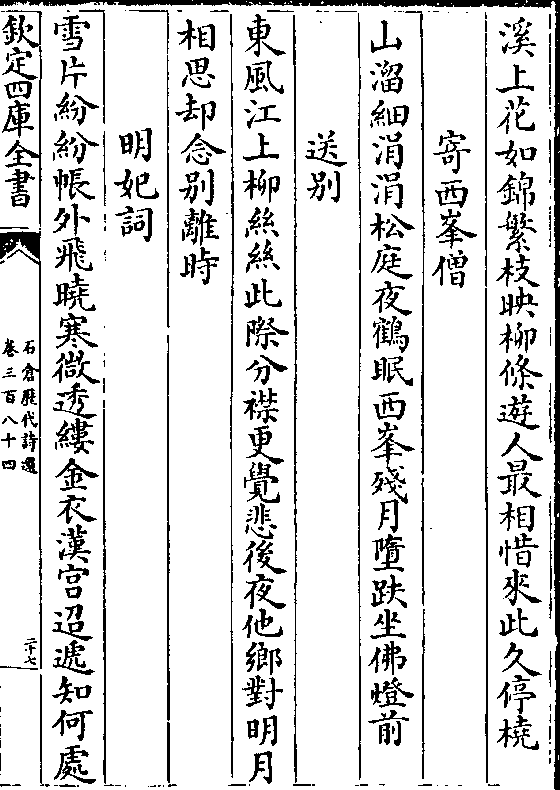 溪上花如錦繁枝映柳條遊人最相惜來此久停橈
寄西峯僧
山溜細涓涓松庭夜鶴眠西峯殘月墮趺坐佛燈前
送别
東風江上柳絲絲此際分襟更覺悲後夜他鄉對明月
相思却念别離時
明妃詞
雪片紛紛帳外飛曉寒微透縷金衣漢宫迢遞知何處
欽定四庫全書
石倉歷代詩選
卷三百八十四
二十七